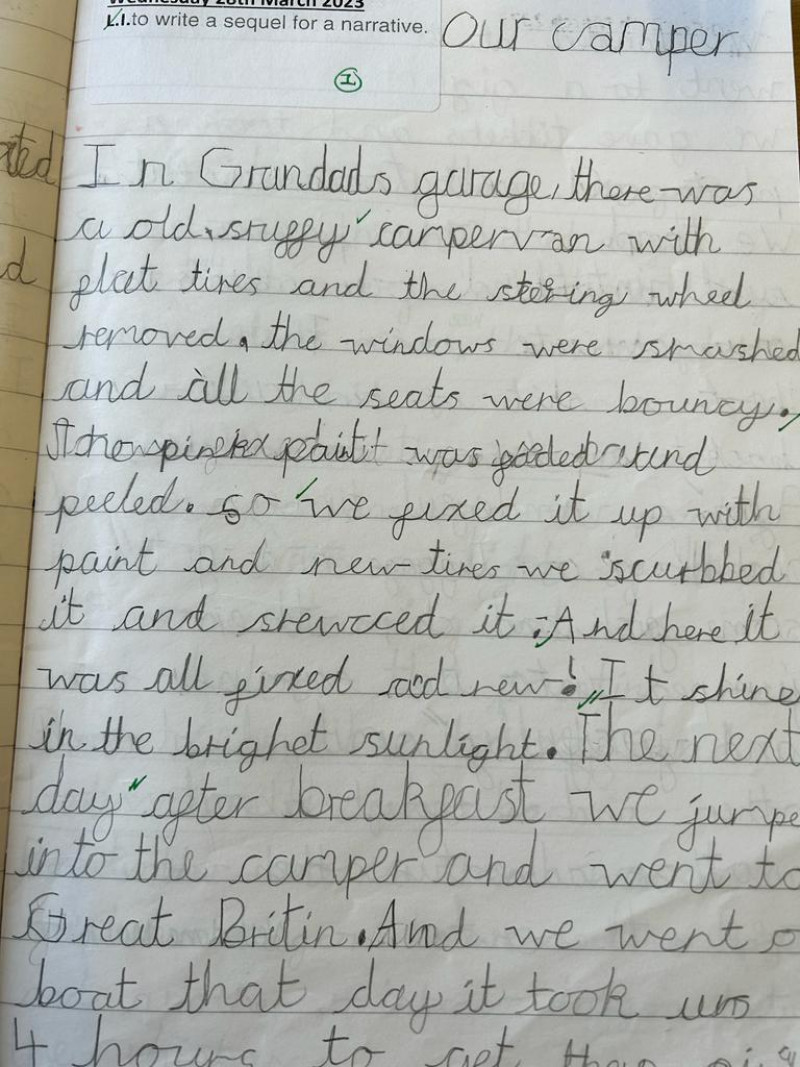 Wednesday 28th March 2023
L.I. to write a sequel for a narrative.
Our camper
1
In Grandads garage, there was
a old, sruffy campervan with
flat tires and the stering wheel
removed, the windows were smashed
and all the seats were bouncy.
paint was and
peeled. So we fixed it up with
paint and new tires we scurbbed
it and it. And here it
was all fixed new! It shine
in the brighet sunlight. The next
day after breakfast we jumpe
into the camper and went to
Great Britin. And we went o
boat that day it took us
4 hours to get